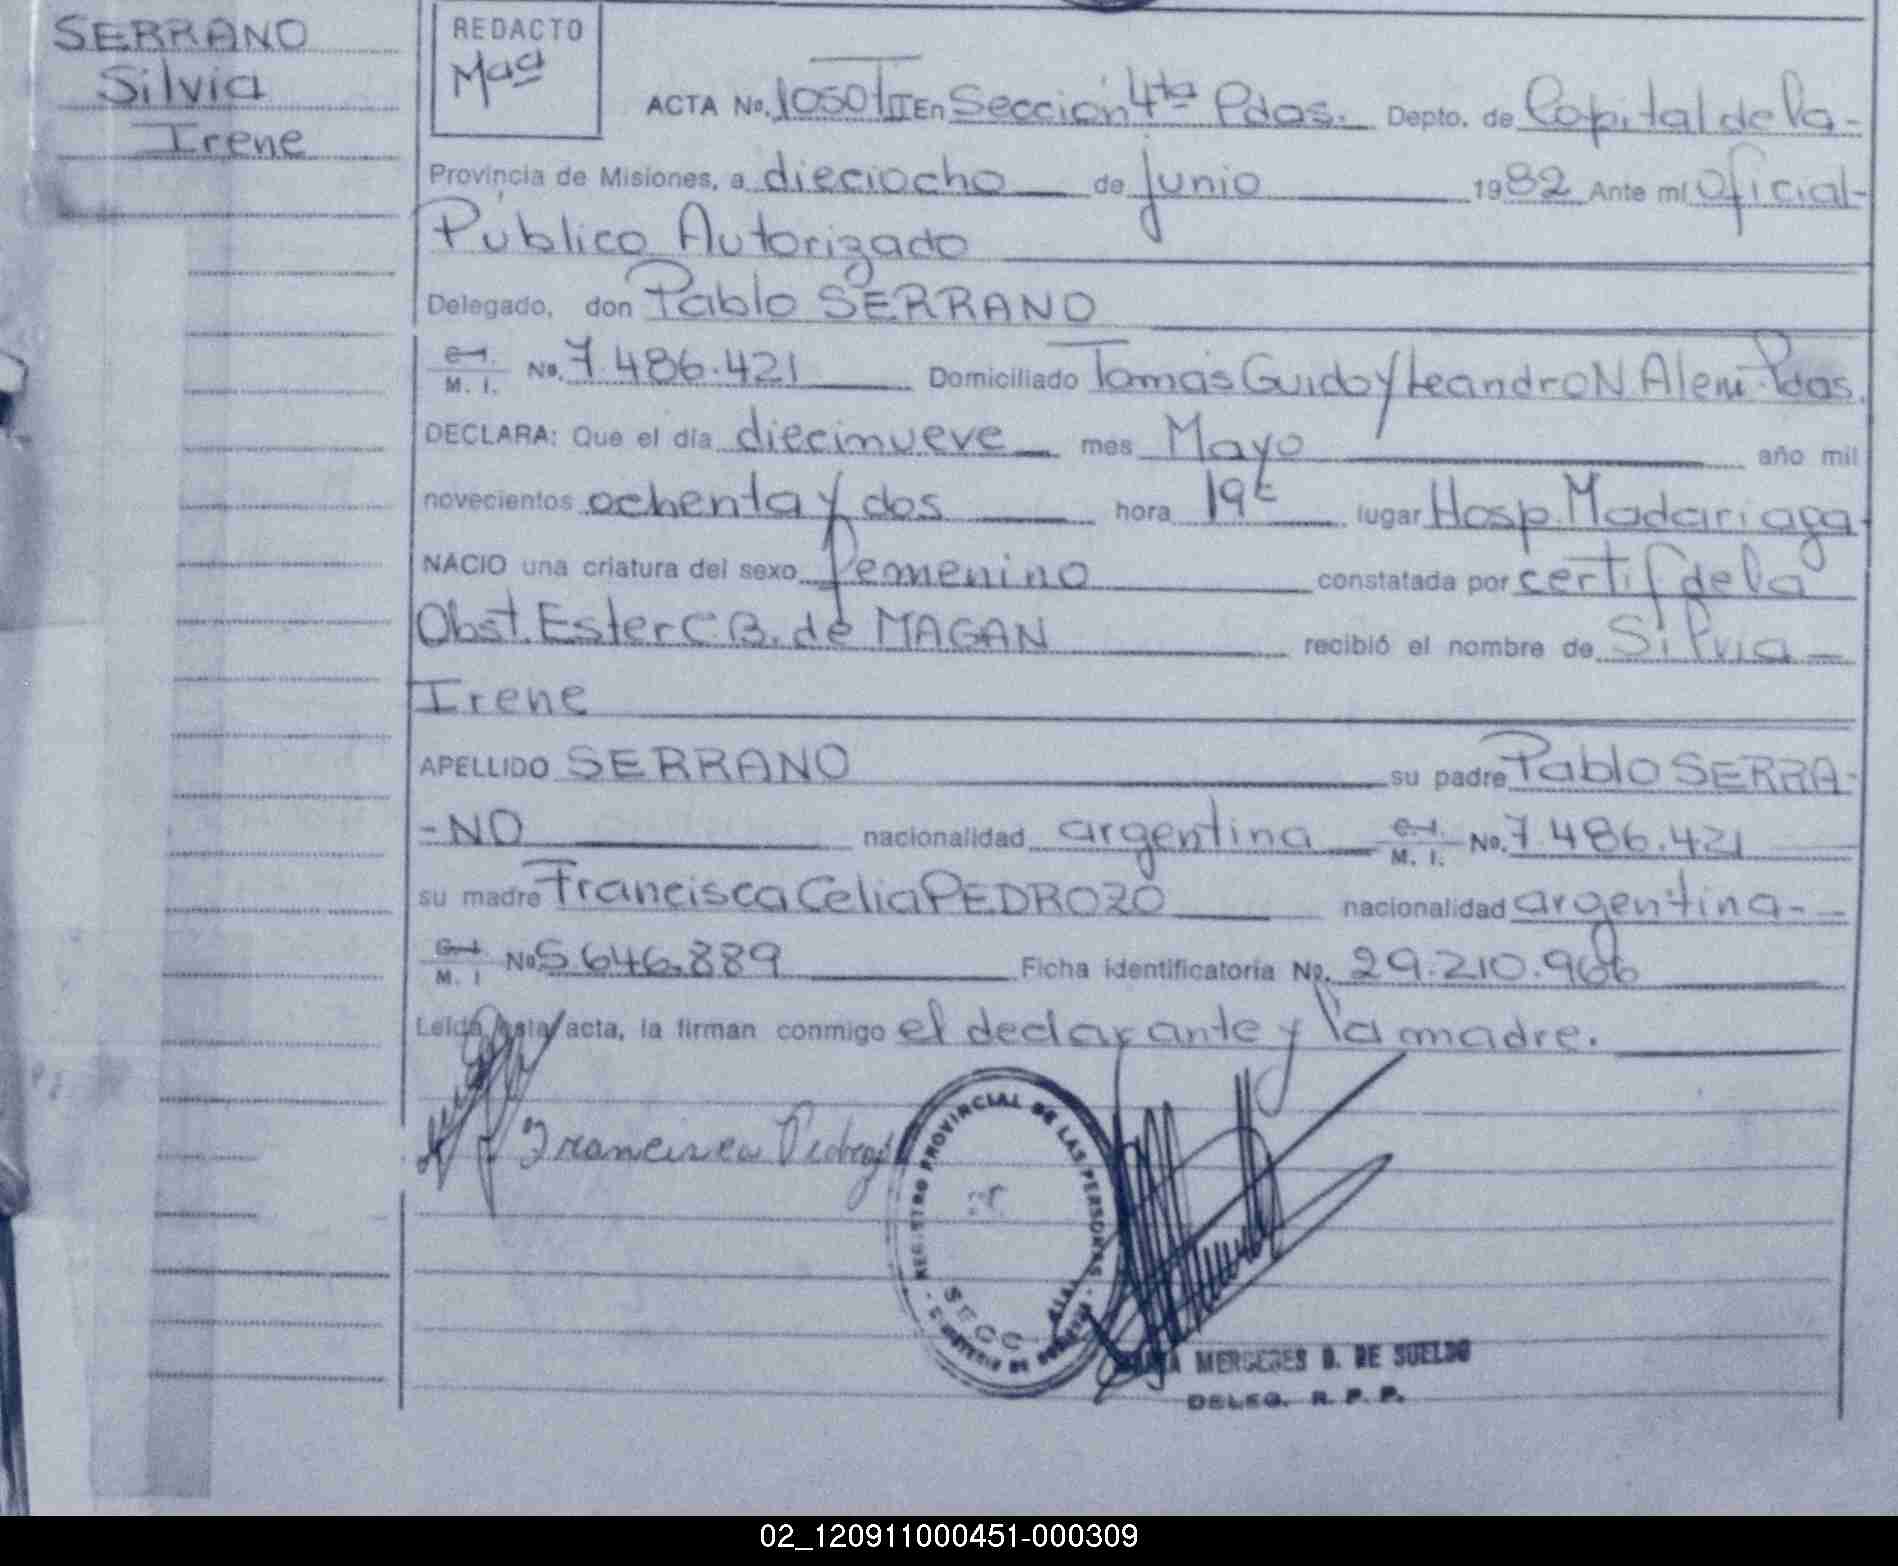 SERRANO
Silvia
Irene
REDACTO
Maa
ACTA No. 1050 TII En Sección 4ta Pdas. Depto. de Capital de la-
Provincia de Misiones, a dieciocho de junio 1982 Ante mi Oficial-
Público Autorizado
Delegado, don Pablo SERRANO
C.I. M. I. No. 7.486.421 Domiciliado Tomás Guido y Leandro N. Alem Pdas.
DECLARA: Que el día diecinueve mes Mayo año mil
novecientos ochenta y dos hora 19 lugar Hosp. Madariaga
NACIO una criatura del sexo femenino constatada por certif de la
Obst. Ester C.B. de MAGAN recibió el nombre de Silvia-
Irene
APELLIDO SERRANO su padre Pablo SERRA-
-NO nacionalidad argentina C.I. M. I. No. 7.486.421
su madre Francisca Celia PEDROZO nacionalidad argentina-
C.I. M. I No 5.646.889 Ficha identificatoria No. 29.210.966
Leída esta acta, la firman conmigo el declarante y la madre.
Francisca Pedrozo
REGISTRO PROVINCIAL DE LAS PERSONAS
SECC. 4TA
MERCEDES D. DE SUELDO
DELEG. R. P. P.
02_120911000451-000309